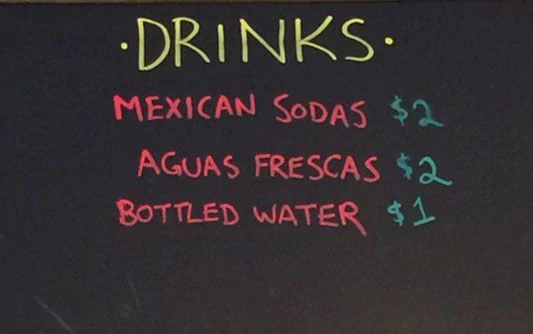 ·DRINKS·
MEXICAN SODAS $2
AGUAS FRESCAS $2
BOTTLED WATER $1